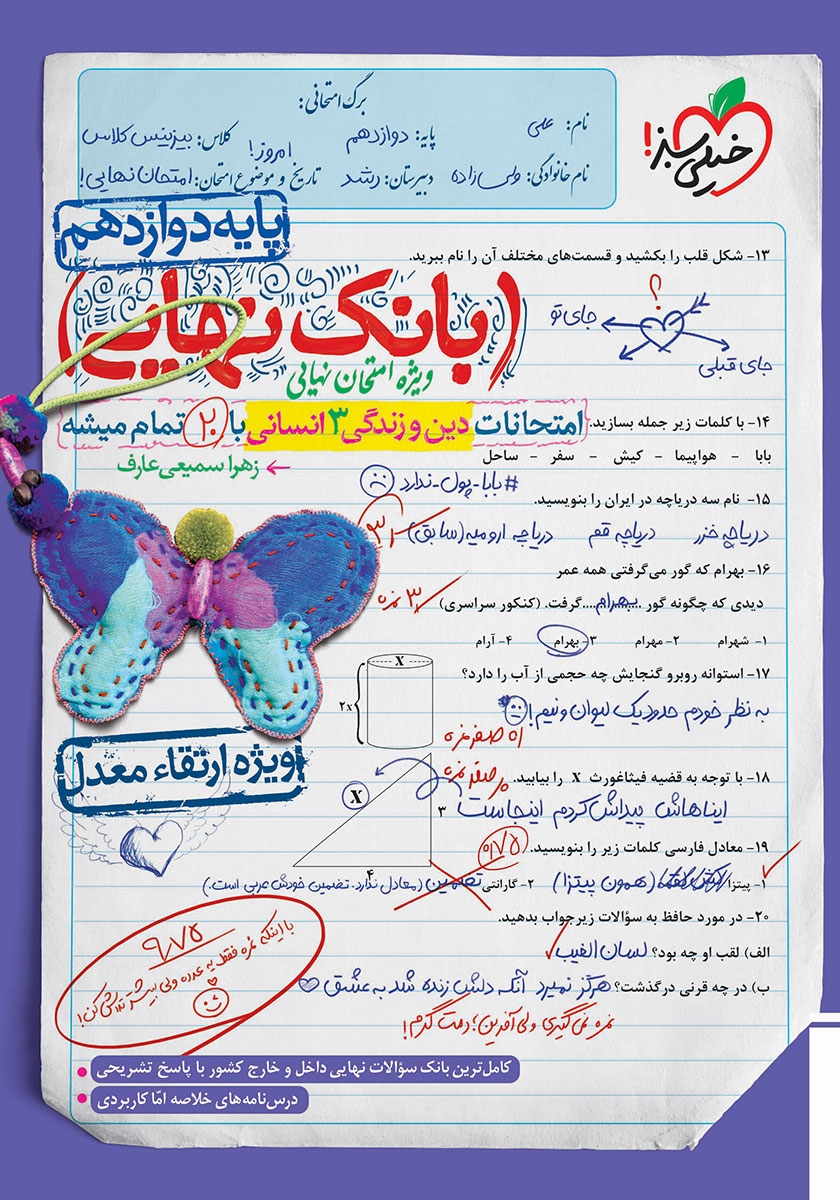 برگ امتحانی:
نام: علی
پایه: دوازدهم
کلاس: بیزینس کلاس
نام خانوادگی: ولی زاده
دبیرستان: رشد
تاریخ و موضوع امتحان: امروز! امتحان نهایی!
خیلی سبز!
پایه دوازدهم
۱۳- شکل قلب را بکشید و قسمت‌های مختلف آن را نام ببرید.
؟
جای تو
جای قبلی
(بانک نهایی)
ویژه امتحان نهایی
۱۴- با کلمات زیر جمله بسازید.
امتحانات دین و زندگی ۳ انسانی با ۲۰ تمام میشه
بابا - هواپیما - کیش - سفر - ساحل
زهرا سمیعی عارف
#بابا-پول-ندارد
۱۵- نام سه دریاچه در ایران را بنویسید.
دریاچه خزر دریاچه قم دریاچه ارومیه (سابق)
۱۶- بهرام که گور می‌گرفتی همه عمر
دیدی که چگونه گور ....بهرام.... گرفت. (کنکور سراسری)
۳ نمره
۱- شهرام ۲- مهرام ۳- بهرام ۴- آرام
۱۷- استوانه روبرو گنجایش چه حجمی از آب را دارد؟
X
2x
به نظر خودم حدود یک لیوان و نیم!
اه صفر نمره
ویژه ارتقاء معدل
۱۸- با توجه به قضیه فیثاغورث X را بیابید.
صفر نمره
ایناهاش پیداش کردم اینجاست
X
۳
۴
۱۹- معادل فارسی کلمات زیر را بنویسید.
۰/۷۵
۱- پیتزا (همون پیتزا) ۲- گارانتی تضمین (معادل ندارد. تضمین خودش عربی است.)
۲۰- در مورد حافظ به سؤالات زیر جواب بدهید.
الف) لقب او چه بود؟ لسان الغیب
ب) در چه قرنی درگذشت؟ هرگز نمیرد آنکه دلش زنده شد به عشق
نمره نمی‌گیری ولی آفرین؛ دمت گرم!
۹/۷۵
با اینکه نمره فقط یه عدده ولی بیشتر تلاش کن!
کامل‌ترین بانک سؤالات نهایی داخل و خارج کشور با پاسخ تشریحی
درس‌نامه‌های خلاصه امّا کاربردی